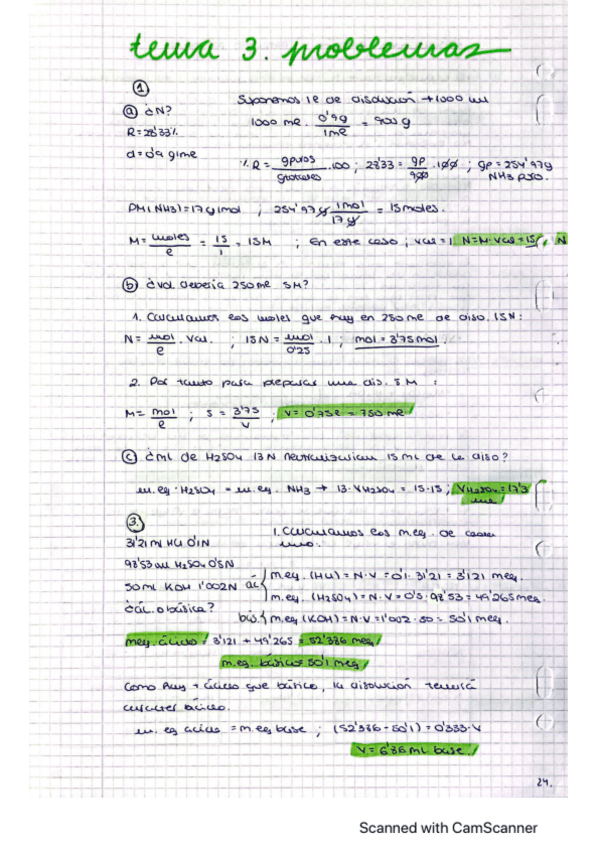 tema 3. problemas
①
ⓐ ¿N?
R=28'33%
d=0'9 g/ml
Suponemos 1l de disolución → 1000 ml
1000 ml · 0'9g/1ml = 900 g
% R = gpuros/gtotales · 100 ; 28'33 = gp/900 · 100 ; gp = 254'97g NH3 puro.
PM(NH3)=17g/mol ; 254'97g · 1mol/17g = 15 moles.
M = moles/l = 15/1 = 15M ; En este caso ; val = 1 N=M·val=15/1 N
ⓑ ¿vol debería 250ml 5M?
1. Calculamos los moles que hay en 250 ml de diso. 15N:
N = mol/l · val. ; 15N = mol/0'25 · 1 ; mol = 3'75mol.
2. Por tanto para preparar una dis. 5M :
M = mol/l ; 5 = 3'75/V ; V = 0'75l = 750 ml
ⓒ ¿mL de H2SO4 13N neutralizarian 15 mL de la diso?
m.eq. H2SO4 = m.eq. NH3 → 13·VH2SO4 = 15·15 ; VH2SO4 = 17'3 ml
③.
31'21 ml HCl 0'1N
98'53 ml H2SO4 0'5N
50 ml KOH 1'002N
¿ác. o básica?
1. Calculamos los m.eq. de cada uno.
ác { m.eq. (HCl) = N·V = 0'1· 31'21 = 3'121 meq.
m.eq. (H2SO4) = N·V = 0'5 · 98'53 = 49'265 meq.
bás. { m.eq (KOH) = N·V = 1'002 · 50 = 50'1 meq.
meq. ácido / 3'121 + 49'265 = 52'386 meq/
m.eq. básicos 50'1 meq/
Como hay + ácido que básico, la disolución tendrá
carácter ácido.
m. eq ácido = m.eq base ; (52'386-50'1) = 0'333·V
V = 6'86 mL base./
24.
Scanned with CamScanner